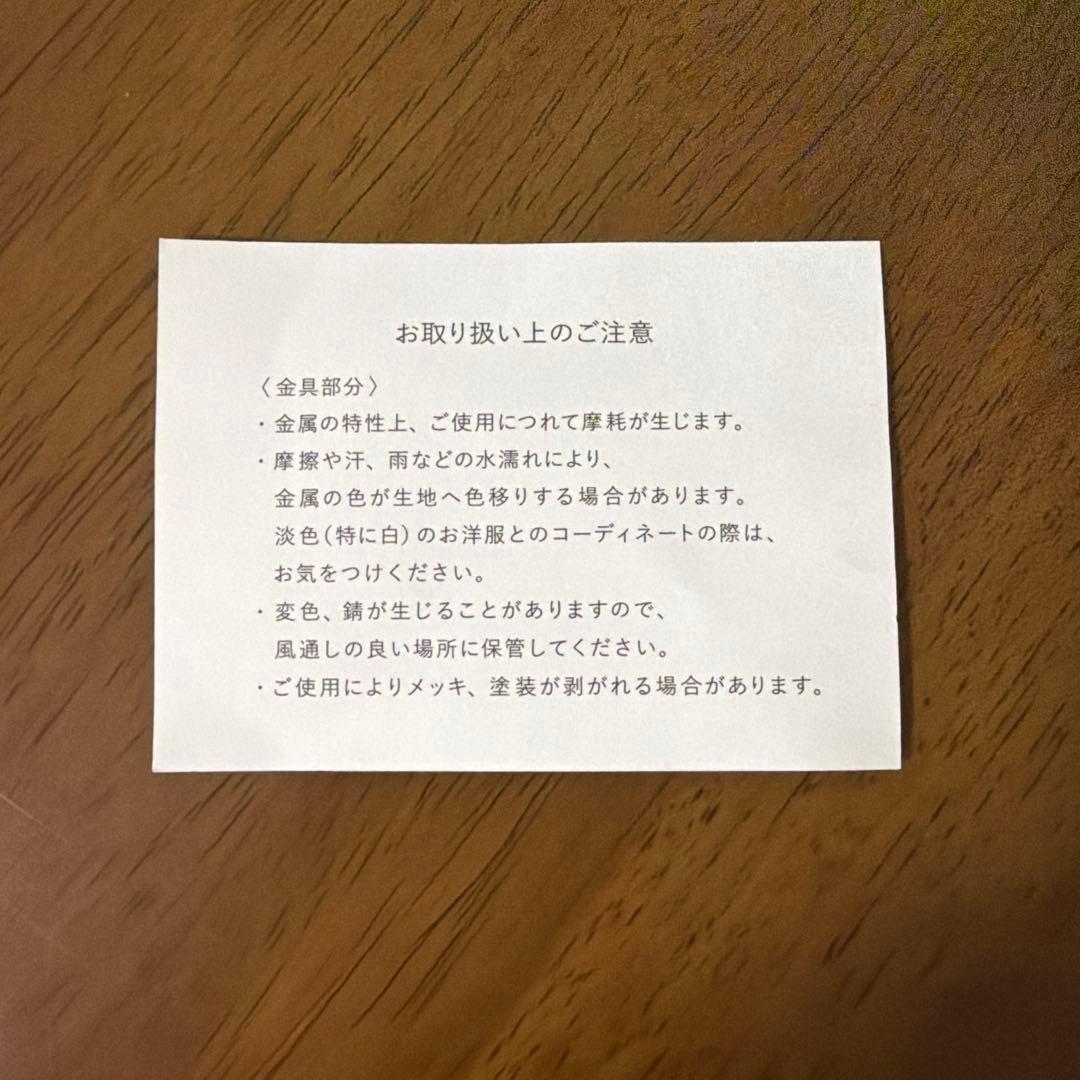 お取り扱い上のご注意
〈金具部分〉
・金属の特性上、ご使用につれて摩耗が生じます。
・摩擦や汗、雨などの水濡れにより、
金属の色が生地へ色移りする場合があります。
淡色(特に白)のお洋服とのコーディネートの際は、
お気をつけください。
・変色、錆が生じることがありますので、
風通しの良い場所に保管してください。
・ご使用によりメッキ、塗装が剥がれる場合があります。